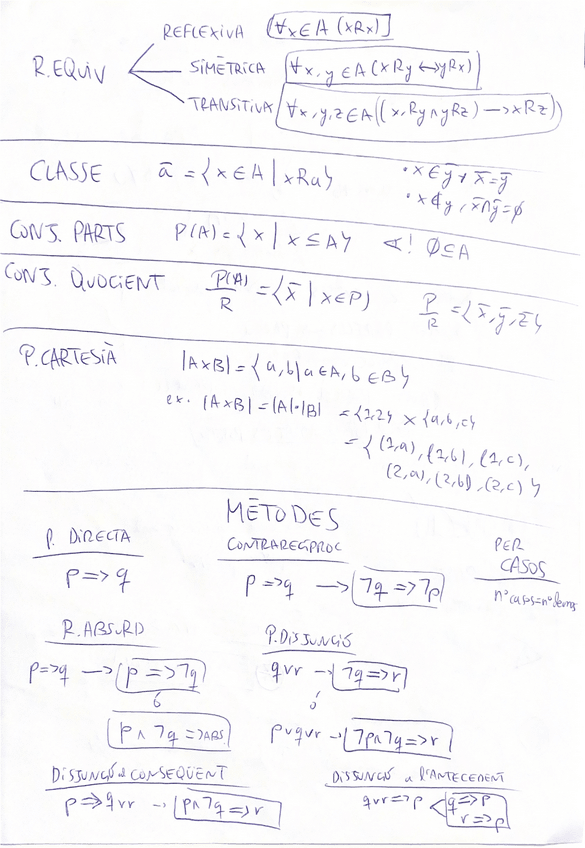 R.EQUIV
REFLEXIVA ∀x∈A (xRx)
SIMÈTRICA ∀x,y∈A(xRy ↔ yRx)
TRANSITIVA ∀x,y,z∈A((xRy ∧ yRz) → xRz)
CLASSE ā = {x∈A | xRa}
• x∈ȳ, x̄=ȳ
• x∉y, x̄∩ȳ=∅
CONJ. PARTS P(A)={x | x⊆A} ! ∅⊆A
CONJ. QUOCIENT P(A)/R = {x̄ | x∈P) P/R = {x̄, ȳ, z̄}
P.CARTESIÀ |AxB| = {a,b | a∈A, b∈B}
ex. |AxB| = |A|·|B| = {1,2} x {a,b,c}
= {(1,a), (1,b), (1,c),
(2,a), (2,b), (2,c)}
MÈTODES
P. DIRECTA
p => q
CONTRARECÍPROC
p => q → ¬q => ¬p
PER
CASOS
nº casos = nº
R.ABSURD
p=>q → p => ¬q
ó
p ∧ ¬q => ABS
P.DISJUNCIÓ
q∨r → ¬q => r
ó
p∨q∨r → ¬p∧¬q => r
DISJUNCIÓ CONSEQÜENT
p => q∨r → p∧¬q => r
DISJUNCIÓ a l'ANTECEDENT
q∨r => p
q => p
r => p